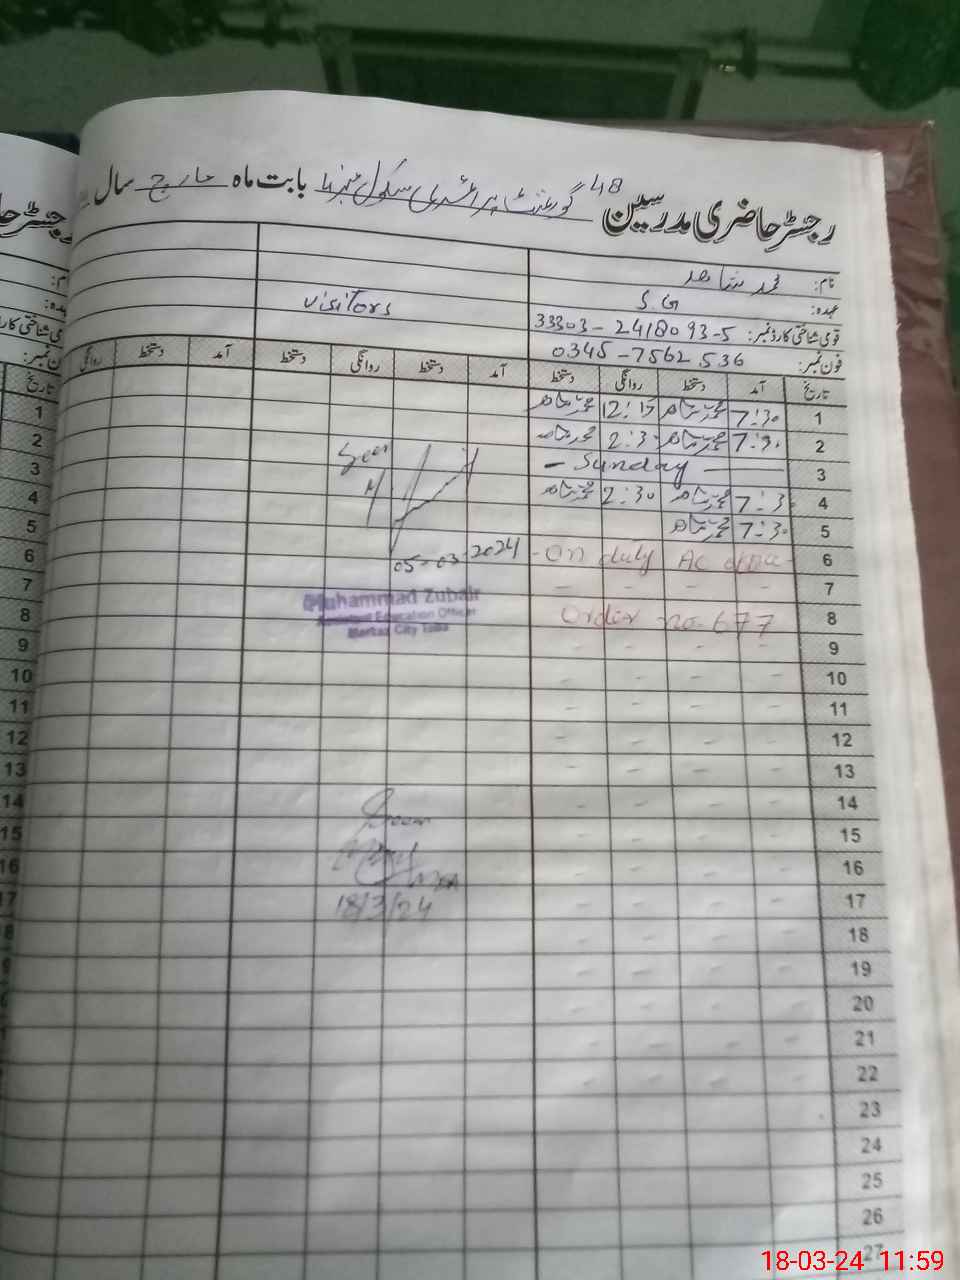 رجسٹر حاضری مدرسین 48 گورنمنٹ پرائمری سکول بابت ماہ مارچ سال
نام: محمد شاہد
عہدہ: S.G
visitors
قومی شناختی کارڈ نمبر: 33303-2418093-5
فون نمبر: 0345-7562536
تاریخ آمد دستخط روانگی دستخط آمد دستخط روانگی دستخط آمد دستخط روانگی
1 7:30 محمد شاہد 12:15 محمد شاہد
2 7:30 محمد شاہد 2:3 محمد شاہد
3 - Sunday -
4 7:3 محمد شاہد 2:30 محمد شاہد
5 7:30 محمد شاہد
Seen
05-03-2024
6 - On duty AC
7 - - - -
8 Order no. 677
Muhammad Zubair
Assistant Education Officer
City
9
10
11
12
13
14
15
16
17
Seen
18/3/24
18
19
20
21
22
23
24
25
26
27
رجسٹر حا
تاریخ
1
2
3
4
5
6
7
8
9
10
11
12
13
14
15
16
17
18-03-24 11:59